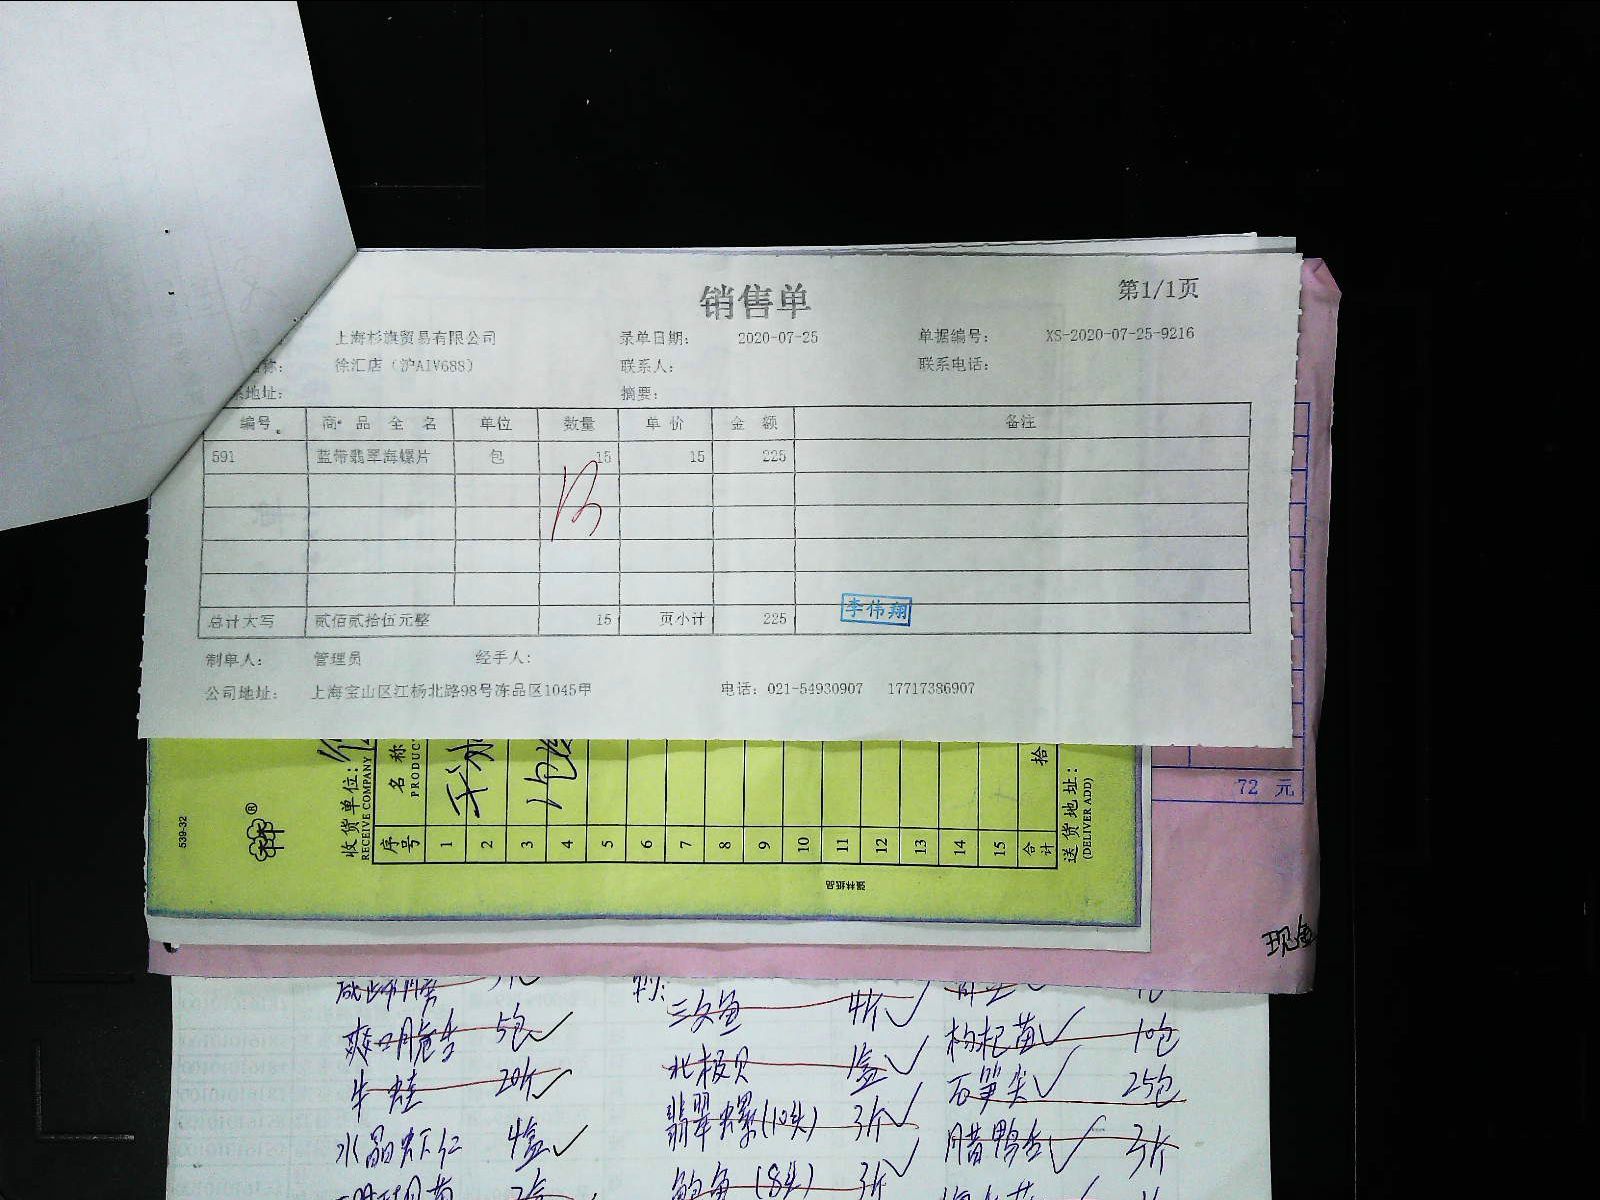 销售单
第1/1页
上海杉旗贸易有限公司 录单日期: 2020-07-25 单据编号: XS-2020-07-25-9216
称: 徐汇店（沪A1V688） 联系人: 联系电话:
地址: 摘要:
编号 商 品 全 名 单位 数量 单 价 金 额 备注
591 蓝带翡翠海螺片 包 15 15 225
总计大写 贰佰贰拾伍元整 15 页小计 225
李伟翔
制单人: 管理员 经手人:
公司地址: 上海宝山区江杨北路98号冻品区1045甲 电话: 021-54930907 17717386907
72 元
539-32
收货单位:
RECEIVE COMPANY
序号 名称
PRODUC
1 2 3 4 5 6 7 8 9 10 11 12 13 14 15 合计
拾
送货地址:
(DELIVER ADD)
强林纸品
现金
爽口脆 5包 三文鱼 4斤 枸杞苗 10包
牛蛙 20斤 北极贝 1盒 石笋尖 25包
水晶虾仁 4盒 翡翠螺(10头) 3斤 腊鸭 3斤
鲍鱼 (8头) 3斤